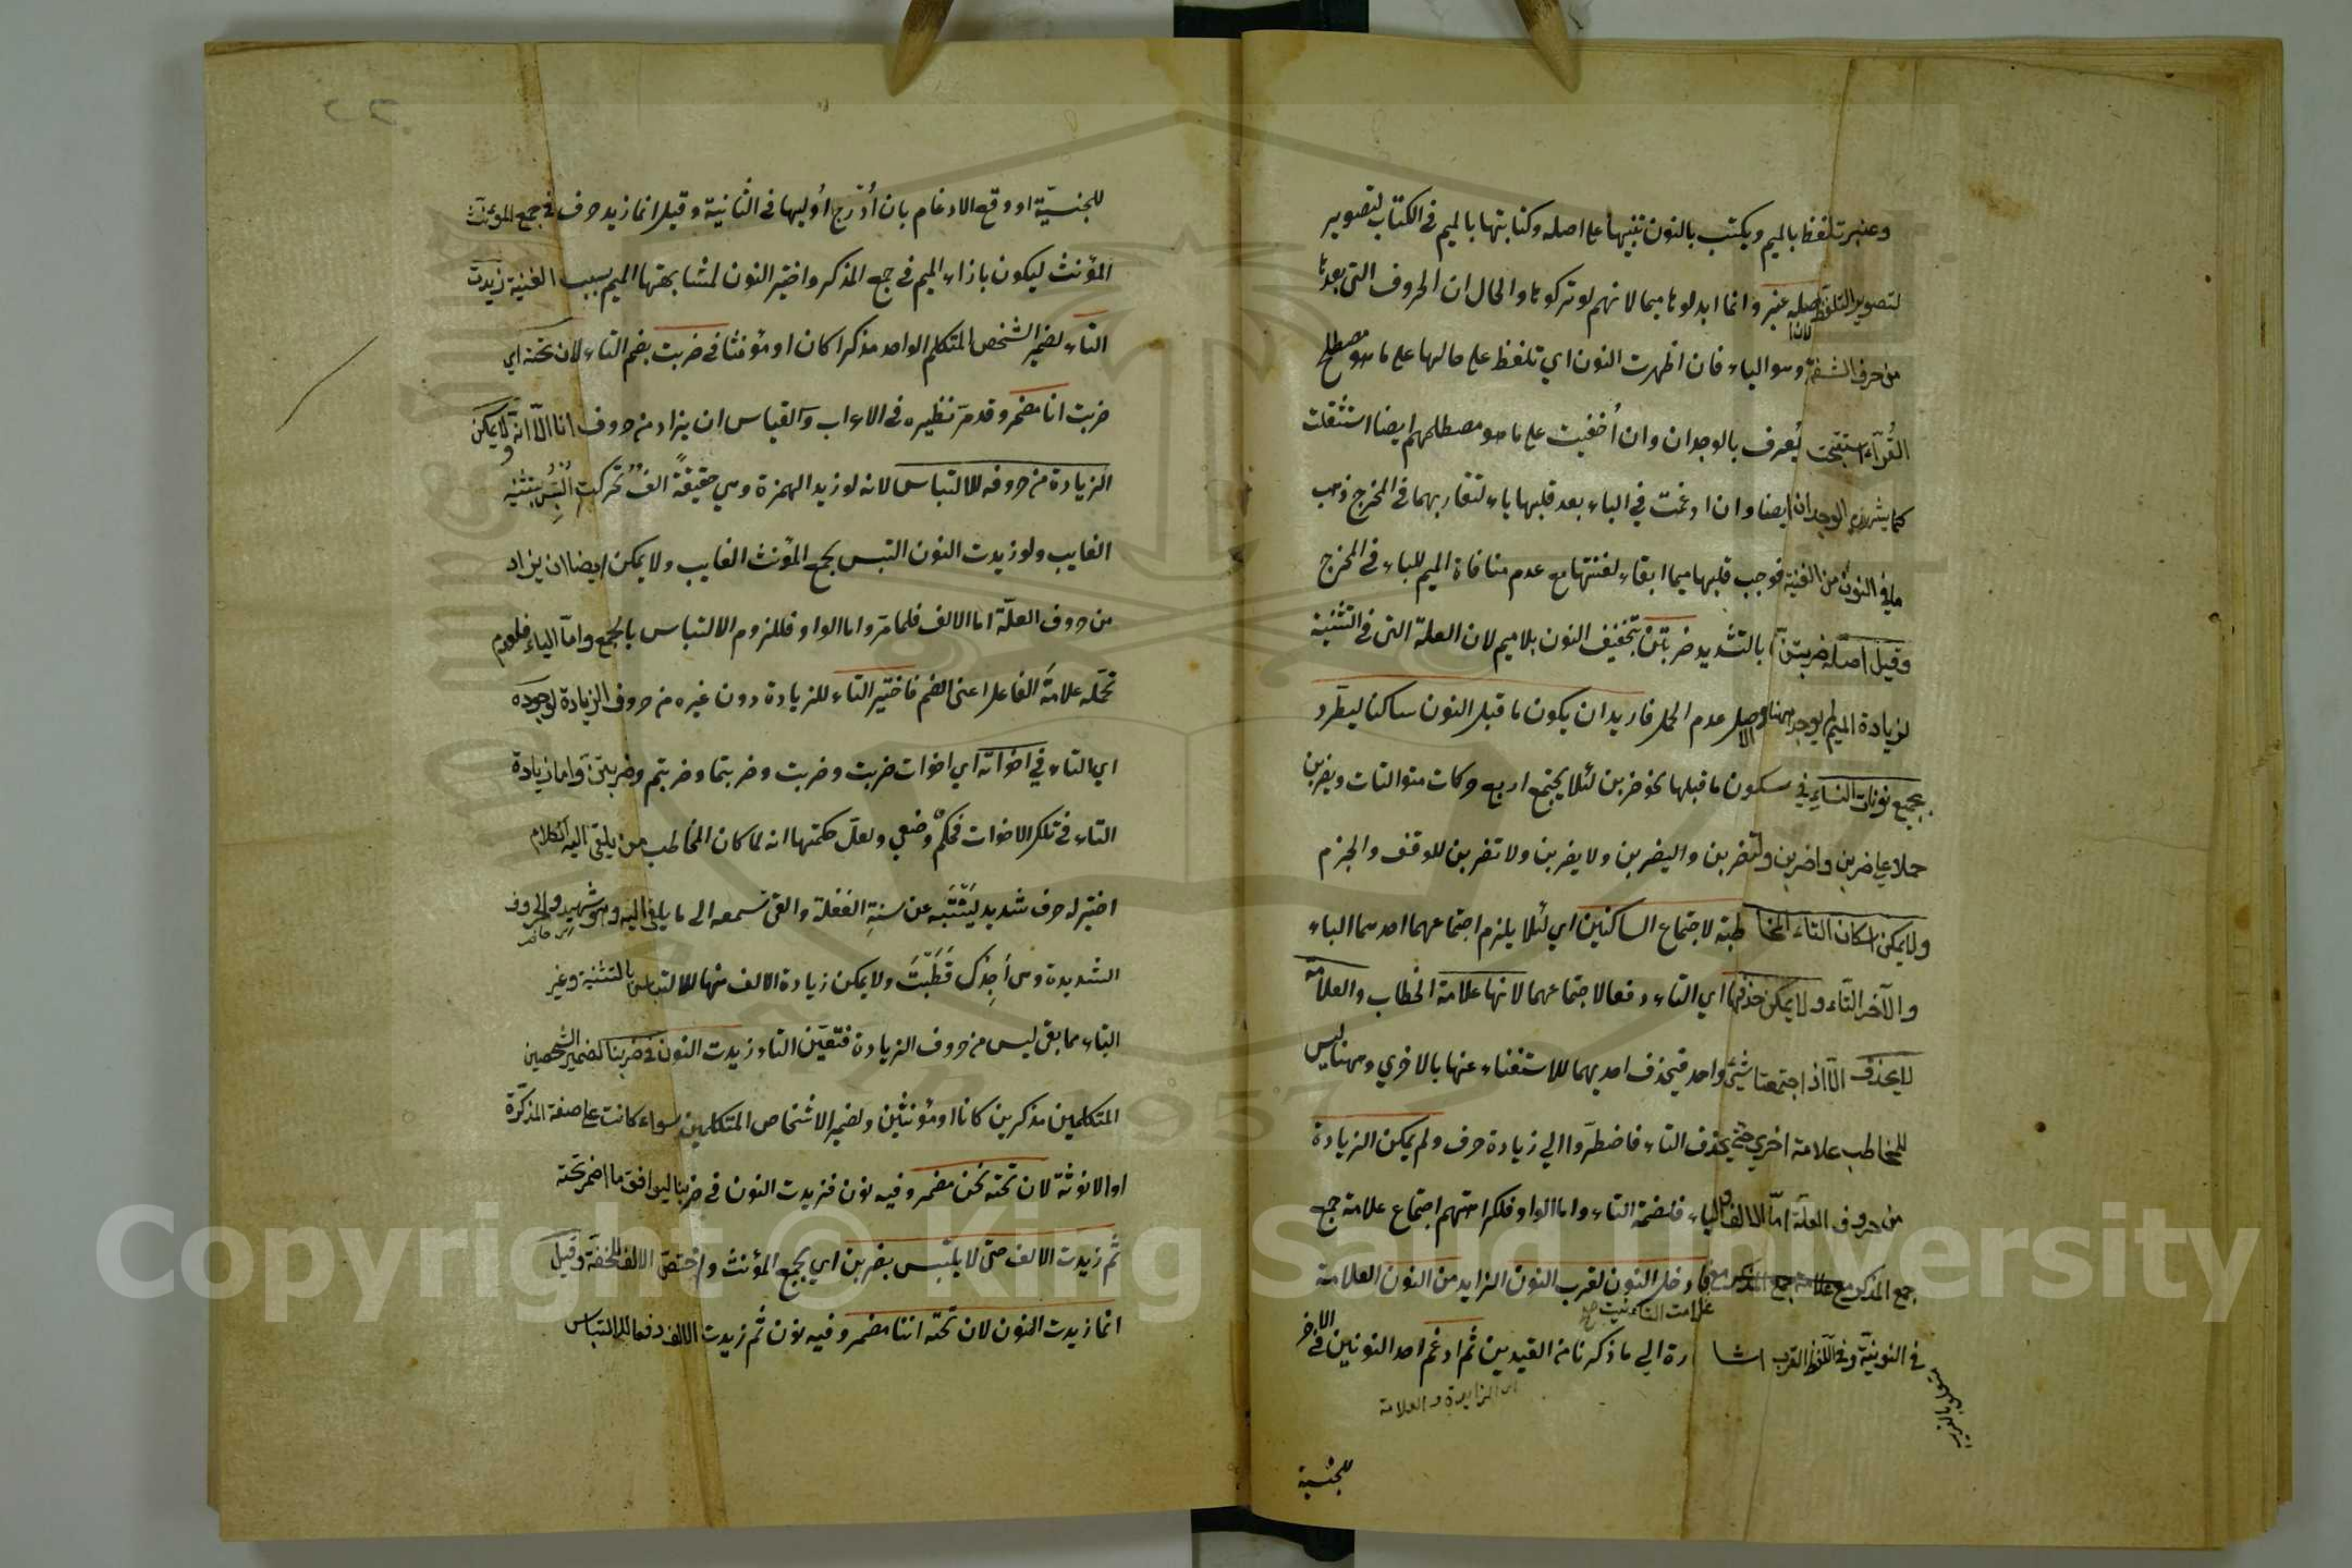 وعنبر تلفظ بالميم ويكتب بالنون تنبيها على اصله وكتابتها بالميم في الكتاب لتصوير
لتصوير التلفظ اصله عنبر وانما ابدلوها ميما لانهم لو تركوها والحال ان الحروف التي بعدها
من حرف الشفة وهو الباء فان اظهرت النون اي تلفظ على حالها على ما هو مصطلح
القرآء استقبحت يُعرف بالوجدان وان أُخفيت على ما هو مصطلحهم ايضا استثقلت
كما يشهد به الوجدان ايضا وان ادغمت في الباء بعد قلبها باء لتقاربهما في المخرج ذهب
ما في النون من الغنة فوجب قلبها ميما ابقاء لغنتها مع عدم منافاة الميم للباء في المخرج
وقيل اصله ضربتنّ بالتشديد ضربتن بتخفيف النون بلا ميم لان العلة التى في التثنية
لزيادة الميم لم يوجد ههنا والاصل عدم الحمل فاريد ان يكون ما قبل النون ساكنا ليطّرد
بجميع نونات النساء في سكون ما قبلها نحو ضربن لئلا يجتمع اربع حركات متواليات ويضربن
حملا على ضربن واضربن ولتضربن والیضربن ولا يضربن ولا تضربن للوقف والجزم
ولا يمكن اسكان التاء المخاطبة لاجتماع الساكنين اي لئلا يلزم اجتماعهما احدهما الباء
والآخر التاء ولا يمكن حذفها اي التاء دفعا لاجتماعهما لانها علامة الخطاب والعلامة
لا يحذف الّا اذا اجتمعتا شيئ واحد فيحذف احديهما للاستغناء عنها بالاخري وههنا ليس
للمخاطب علامة اخري حتى يحذف التاء فاضطرّوا الي زيادة حرف ولم يمكن الزيادة
من حروف العلّة امّا الالف والياء فلضمة التاء واما الواو فلكراهتهم اجتماع علامة جمع
جمع المذكر مع فادخل النون لقرب النون الزايد من النون العلامة
علامت التأنيث صح
في النونيّة وفي اللفظ القرب اشارة الي ما ذكرنا من القيدين ثم ادغم احد النونين في الاخر
اى الزايدة والعلامة
للجنسية
للجنسيّة او وقع الادغام بان أدّرج أوليها في الثانية وقيل انما زيد حرف في جمع المؤنث
المؤنث ليكون بازاء الميم في جمع المذكر واختير النون لمشابهتها الميم بسبب الغنية زيدت
التاء لضمير الشخص المتكلم الواحد مذكرا كان او مؤنثا في ضربت بضم التاء لان تحته اي
ضربت انا مضمر وقد مرّ نظيره في الاعراب والقياس ان يزاد من حروف انا الّا انه لا يمكن
الزيادة من حروفه للالتباس لانه لو زيد الهمزة وهي حقيقةً الفٌ تحركت اُلتبس بتثنية
الغايب ولو زيدت النون التبس بجمع المؤنث الغايب ولا يمكن ايضا ان يزاد
من حروف العلّة اما الالف فلما مرّ واما الواو فللزوم الالتباس بالجمع وامّا الياء فلعدم
تحمّله علامة الفاعل اعنى الضم فاختير التاء للزيادة دون غيره من حروف الزيادة لوجوده
اي التاء في اخواته اي اخوات ضربت وضربت وضربتما وضربتم وضربتنّ واما زيادة
التاء في تلك الاخوات فحكمٌ وضعي ولعلّ حكمتها انه لما كان المخاطب من يلقى اليه الكلام
اختير له حرف شديد ليَتَنَّبه عن سنةِ الغفلة والقى سمعه الى ما يلقى اليه وهو شهيد والحروف
الشديدة وهى أَجِدُكَ قَطَّبْتَ ولا يمكن زيادة الالف منها للالتباس بالتثنية وغير
التاء مما بقى ليس من حروف الزيادة فتعيّن التاء زيدت النون في ضربنا لضمير الشخصين
المتكلمين مذكرين كانا او مؤنثين ولضمير الاشخاص المتكلمين سواء كانت على صفة المذكّرة
او الانوثة لان تحته نحن مضمر وفيه نون فزيدت النون في ضربنا ليوافق ما اضمر تحته
ثم زيدت الالف حتى لا يلتبس بضربن اي بجمع المؤنث واختصّ الالف للخفّة وقيل
انما زيدت النون لان تحته اننا مضمر وفيه نون ثم زيدت الالف دفعا للالتباس
Copyright © King Saud University
1957